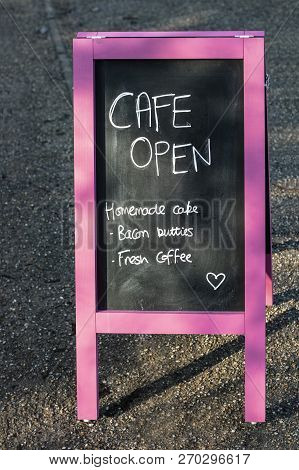 CAFE
OPEN
Homemade cake
- Bacon butties
- Fresh Coffee
shutterstock.com · 2270296617